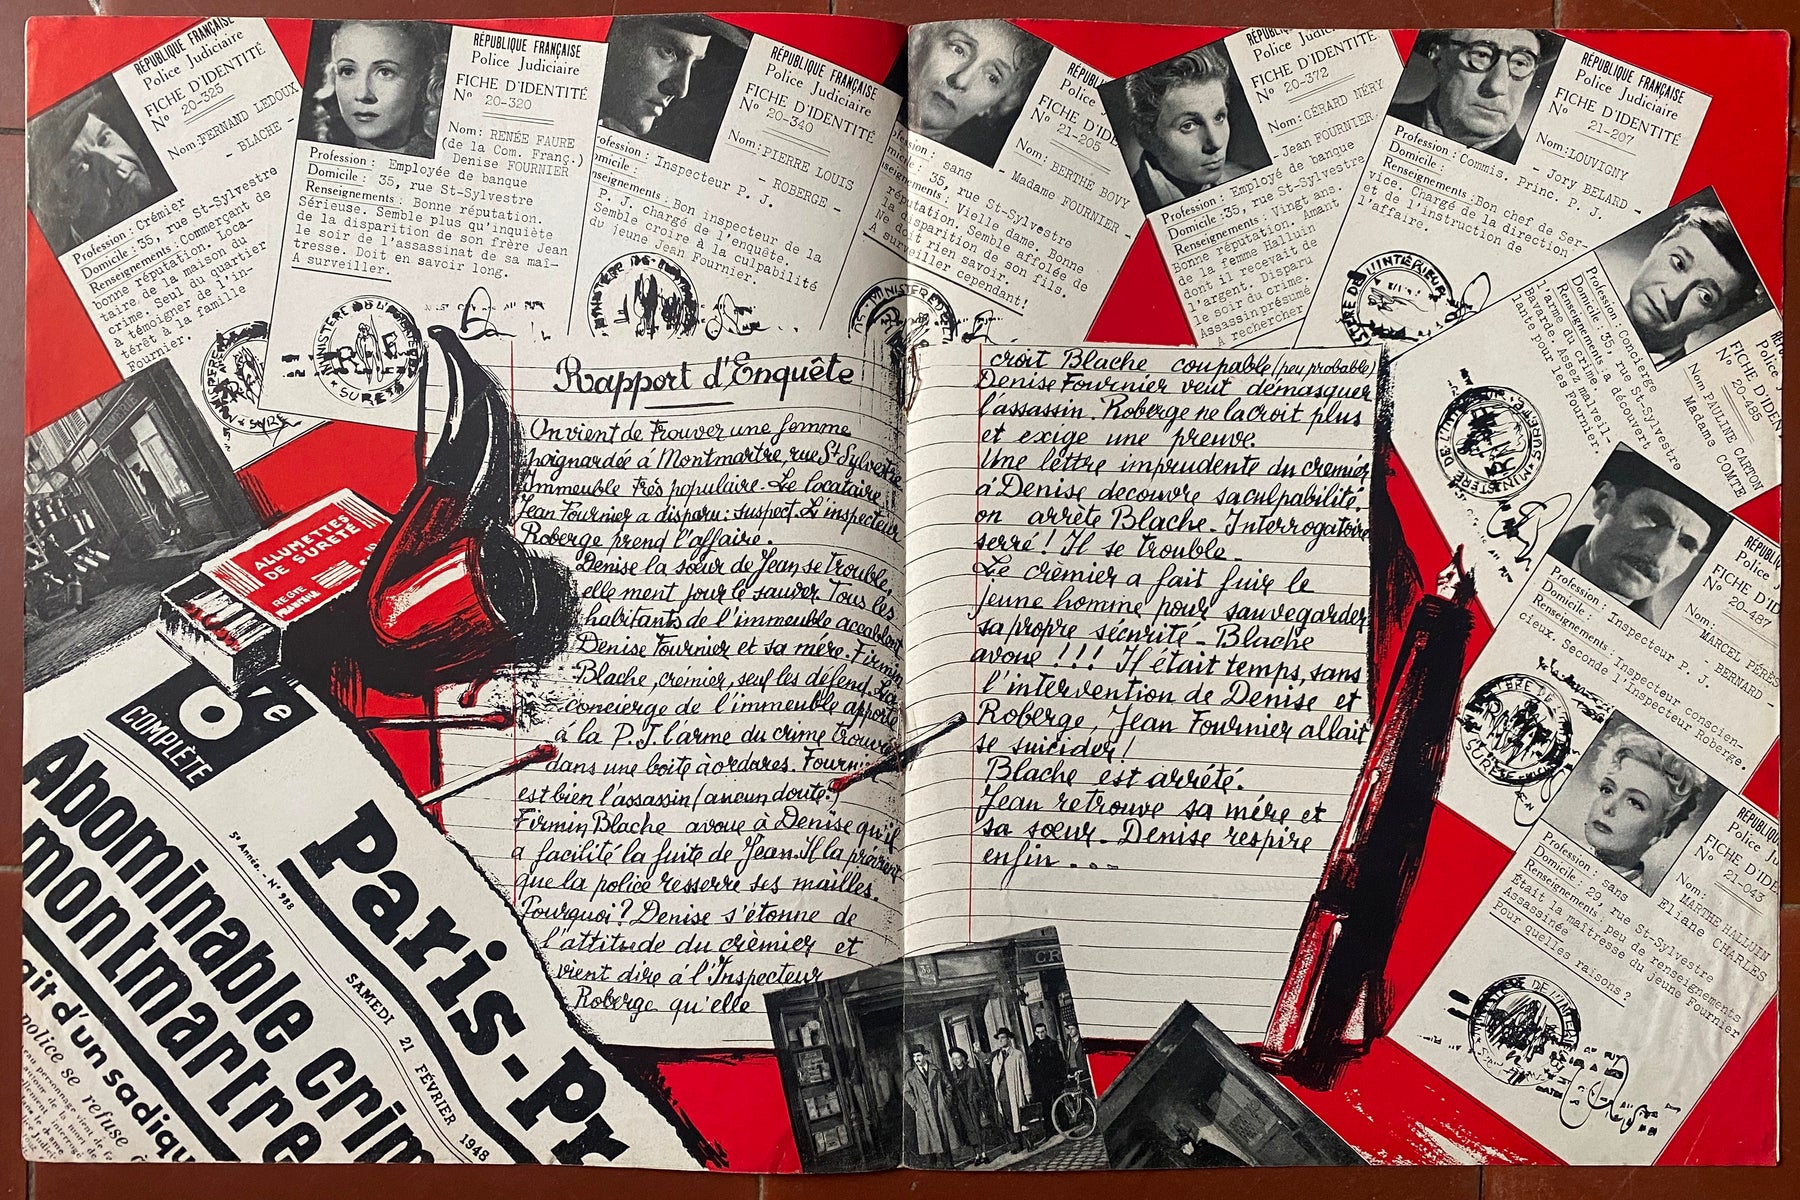 RÉPUBLIQUE FRANÇAISE
Police Judiciaire
FICHE D'IDENTITÉ
N° 20-325
Nom: FERNAND LEDOUX
- BLACHE -
Profession : Crémier
Domicile : 35, rue St-Sylvestre
Renseignements : Commerçant de
bonne réputation. Loca-
taire de la maison du
crime. Seul du quartier
à témoigner de l'in-
térêt à la famille
Fournier.
RÉPUBLIQUE FRANÇAISE
Police Judiciaire
FICHE D'IDENTITÉ
N° 20-320
Nom: RENÉE FAURE
(de la Com. Franç.)
Denise FOURNIER
Profession : Employée de banque
Domicile : 35, rue St-Sylvestre
Renseignements : Bonne réputation.
Sérieuse. Semble plus qu'inquiète
de la disparition de son frère Jean
le soir de l'assassinat de sa maî-
tresse. Doit en savoir long.
A surveiller.
RÉPUBLIQUE FRANÇAISE
Police Judiciaire
FICHE D'IDENTITÉ
N° 20-340
Nom: PIERRE LOUIS
- ROBERGE -
Profession : Inspecteur P. J.
omicile :
nseignements : Bon inspecteur de la
P. J. chargé de l'enquête.
Semble croire à la culpabilité
du jeune Jean Fournier.
RÉPUB
Police
FICHE D'IDE
N° 21-205
Nom: BERTHE BOVY
- Madame FOURNIER -
sans
35, rue St-Sylvestre
Vielle dame. Bonne
réputation. Semble affolée de
la disparition de son fils.
Ne doit rien savoir.
A surveiller cependant!
RÉPUBLIQUE FRANÇAISE
Police Judi
FICHE D'IDENTITÉ
N° 20-372
Nom: GÉRARD NÉRY
- Jean FOURNIER
Profession : Employé de banque
Domicile : 35, rue St-Sylvestre
Renseignements : Vingt ans.
Bonne réputation. Amant
de la femme Halluin
dont il recevait de
l'argent. Disparu
le soir du crime
Assassin présumé
A rechercher
RÉPUBLIQUE FRANÇAISE
Police Judiciaire
FICHE D'IDENTITÉ
N° 21-207
Nom: LOUVIGNY
- Jory BELARD -
Profession : Commis. Princ. P. J.
Domicile :
Renseignements : Bon chef de Ser-
vice. Chargé de la direction
et de l'instruction de
l'affaire.
RÉPU
Police
FICHE D'IDEN
N° 20-485
Nom: PAULINE CARTON
Madame COMTE
Profession : Concierge
Domicile : 35, rue St-Sylvestre
Renseignements : a découvert
l'arme du crime.
Bavarde, assez malveil-
lante pour les Fournier.
RÉPUBLI
Police
FICHE D'ID
N° 20-487
Nom: MARCEL PÉRÈS
- BERNARD -
Profession : Inspecteur P. J.
Domicile :
Renseignements : Inspecteur conscien-
cieux. Seconde l'Inspecteur Roberge.
RÉPUBLIQU
Police Ju
FICHE D'IDE
N° 21-043
Nom: MARTHE HALLUIN
Eliane CHARLES
Profession : sans
Domicile : 29, rue St-Sylvestre
Renseignements : peu de renseignements
Était la maîtresse du jeune Fournier
Assassinée
Pour quelles raisons ?
Rapport d'Enquête
On vient de trouver une femme
poignardée à Montmartre, rue St Sylvestre
Immeuble très populaire. Le locataire
Jean Fournier a disparu : suspect. L'inspecteur
Roberge prend l'affaire.
Denise la sœur de Jean se trouble,
elle ment pour le sauver Tous les
habitants de l'immeuble accablent
Denise Fournier et sa mère. Firmin
Blache, crémier, seul les défend. La
concierge de l'immeuble apporte
à la P. J. l'arme du crime trouvée
dans une boite à ordures. Fourni
est bien l'assassin (aucun doute.)
Firmin Blache avoue à Denise qu'il
a facilité la fuite de Jean. Il la prévient
que la police resserre ses mailles.
Pourquoi ? Denise s'étonne de
l'attitude du crèmier et
vient dire à l'Inspecteur
Roberge qu'elle
croit Blache coupable (peu probable)
Denise Fournier veut démasquer
l'assassin. Roberge ne la croit plus
et exige une preuve.
Une lettre imprudente du cremier
à Denise decouvre sa culpabilité.
on arrête Blache. Interrogatoire
serré ! Il se trouble -
Le crèmier a fait fuir le
jeune homme pour sauvegarder
sa propre sécurité - Blache
avoue !!! Il était temps, sans
l'intervention de Denise et
Roberge, Jean Fournier allait
se suicider !
Blache est arrété.
Jean retrouve sa mére et
sa sœur. Denise respire
enfin ...
ALLUMETTES
DE SURETÉ
REGIE
FRANÇAISE
6e
COMPLÈTE
5e Année. - N° 988
Paris-Pr
SAMEDI 21 FÉVRIER 1948
Abominable crim
montmartre
git d'un sadiqu
police se refuse
CR